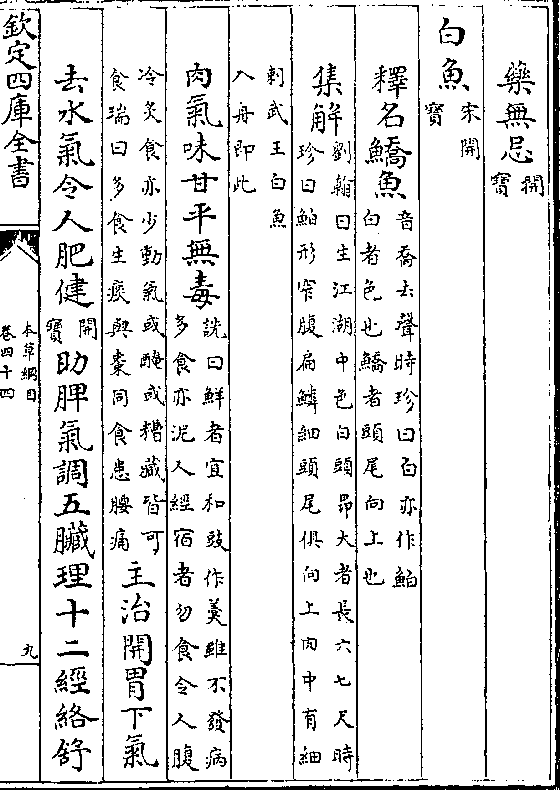 藥無忌開寶
白魚宋開寶
釋名鱎魚音喬去聲時珍曰白亦作鮊白者色也鱎者頭尾向上也
集解劉翰曰生江湖中色白頭昂大者長六七尺時珍曰鮊形窄腹扁鱗細頭尾俱向上肉中有細
刺武王白魚入舟即此
肉氣味甘平無毒詵曰鮮者宜和豉作羮雖不發病多食亦泥人經宿者勿食令人腹
冷炙食亦少動氣或醃或糟藏皆可食瑞曰多食生痰與棗同食患腰痛主治開胃下氣
去水氣令人肥健開寶助脾氣調五臟理十二經絡舒
欽定四庫全書
本草綱目
卷四十四
九